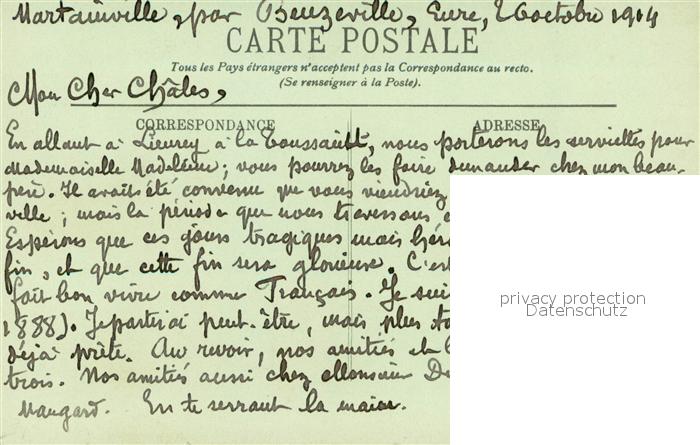 Martainville, par Beuzeville, Eure, 26 octobre 1914
CARTE POSTALE
Tous les Pays étrangers n'acceptent pas la Correspondance au recto.
(Se renseigner à la Poste).
Mon Cher Châles,
CORRESPONDANCE
ADRESSE
En allant à Lieurey à la Toussaint, nous porterons les serviettes pour
Mademoiselle Madeleine; vous pourrez les faire demander chez mon beau-
père. Il avait été convenu que vous viendriez
ville; mais la période que nous traversons
Espérons que ces jours tragiques mais
fin, et que cette fin sera glorieuse. C'est
fait bon vivre comme Français. Je suis
1888). Je partirai peut-être, mais plus
déjà prête. Au revoir, nos amitiés et
trois. Nos amitiés aussi chez Monsieur
Maugard. En te serrant la main.
privacy protection
Datenschutz